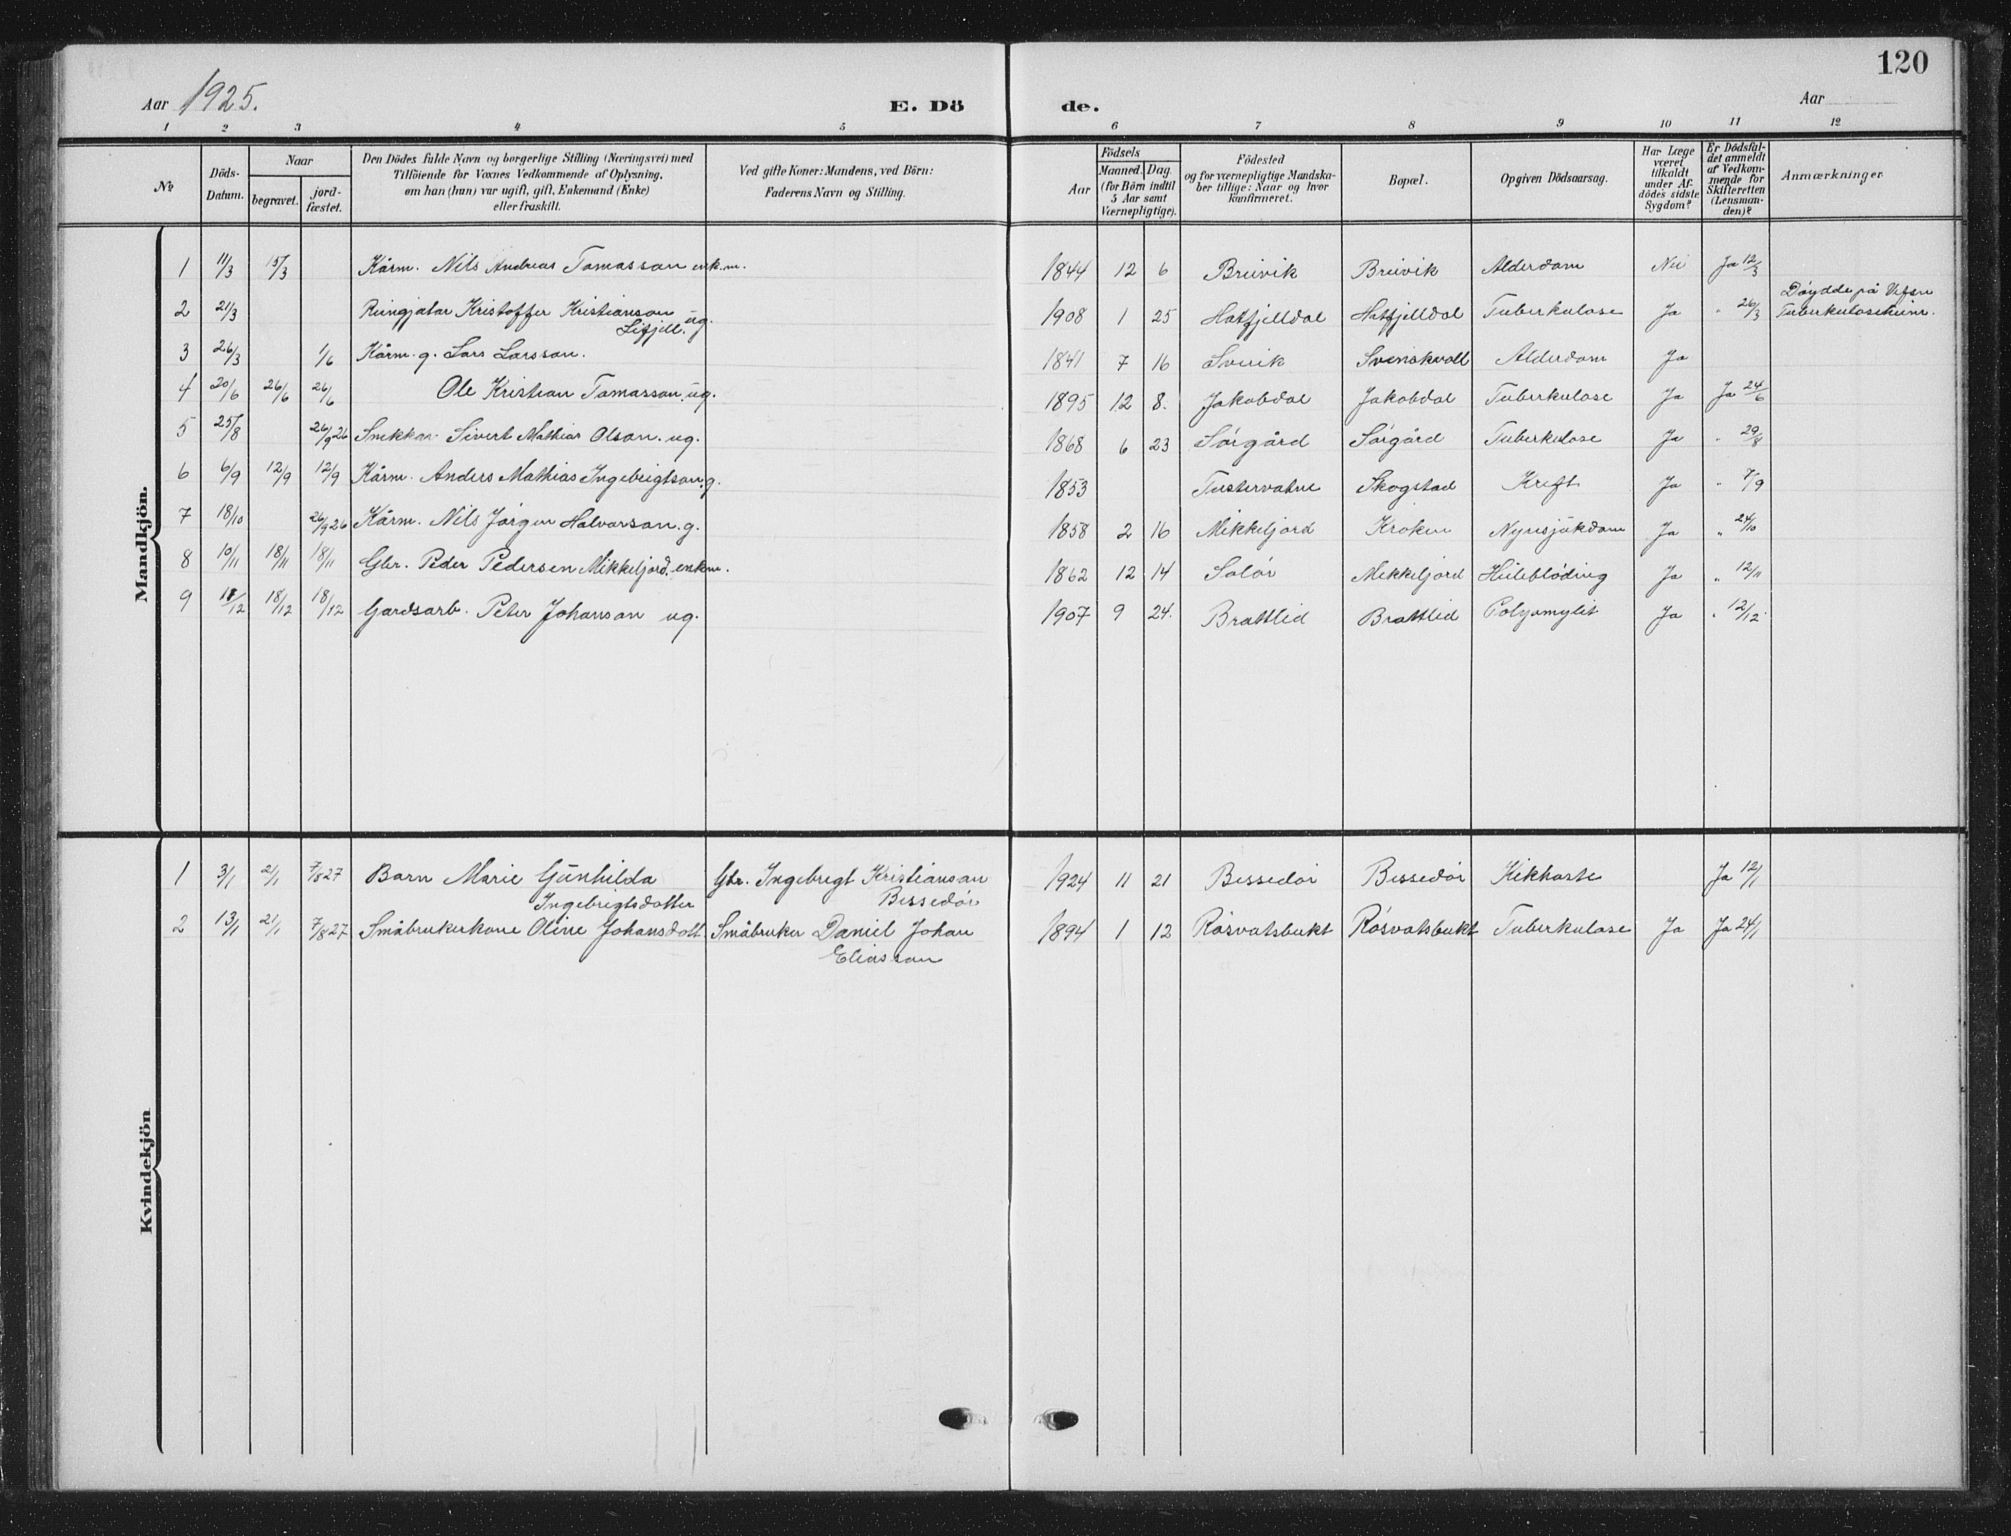 120
Aar 1925.
E. Dö de.
Aar
1 2 3 4 5 6 7 8 9 10 11 12
№
Döds-Datum.
Naar
begravet.
jord-fæstet.
Den Dödes fulde Navn og borgerlige Stilling (Næringsvei) med
Tilföiende for Voxnes Vedkommende af Oplysning,
om han (hun) var ugift, gift, Enkemand (Enke)
eller fraskilt.
Ved gifte Koner: Mandens, ved Börn:
Faderens Navn og Stilling.
Födsels
Aar
Maaned. Dag
(for Börn indtil
5 Aar samt
Værnepligtige).
Födested
og for værnepligtige Mandska-
ber tillige: Naar og hvor
konfirmeret.
Bopæl.
Opgiven Dödsaarsag.
Har Læge
været
tilkaldt
under Af-
dödes sidste
Sygdom?
Er Dödsfal-
det anmeldt
af Vedkom-
mende for
Skifteretten
(Lensman-
den)?
Anmærkninger
Mandkjön.
1 11/3 15/3 Kårm. Nils Andreas Tomasson enk.m. 1844 12 6 Breivik Breivik Alderdom Nei Ja 12/3
2 21/3 Reingjætar Kristoffer Kristianson 1908 1 25 Hatfjelldal Hatfjelldal Tuberkulose Ja " 26/3 Döydde på Vefsn
Lifjell. ug. Tuberkuloseheim.
3 26/3 1/6 Kårm. g. Lars Larsson. 1841 7 16 Svenskvoll Alderdom Ja
4 20/6 26/6 26/6 Ole Kristian Tomasson ug. 1895 12 8. Jakobdal Jakobdal Tuberkulose Ja Ja 24/6
5 25/8 26/9 26 Snekkar Sivert Mathias Olson. ug. 1868 6 23 Sörgård Sörgård Tuberkulose Ja " 29/8
6 6/9 12/9 12/9 Kårm. Anders Mathias Ingebrigtson g. 1853 Tustervatne Skogstad Kreft Ja " 7/9
7 18/10 26/9 26 Kårm. Nils Jörgen Halvorson. g. 1858 2 16 Mikkeljord Kroken Nyresjukdom Ja " 24/10
8 10/11 18/11 18/11 Gbr. Peder Pedersen Mikkeljord. enkm. 1862 12 14 Solör Mikkeljord Heileblöding Ja " 12/11
9 11/12 18/12 18/12 Gardsarb. Peter Johanson ug. 1907 9 24. Brattlid Brattlid Polyomylit Ja " 12/12
Kvindekjön
1 3/1 21/1 7/8 27 Barn Marie Gunhilda Gbr. Ingebrigt Kristianson 1924 11 21 Bessedör Bessedör Kikhoste Ja 12/1
Ingebrigtsdotter Bessedör
2 13/1 21/1 7/8 27 Småbrukerkone Oline Johansdott. Småbruker Daniel Johan 1894 1 12 Rösvatsbukt Rösvatsbukt Tuberkulose Ja Ja 24/1
Eliasson